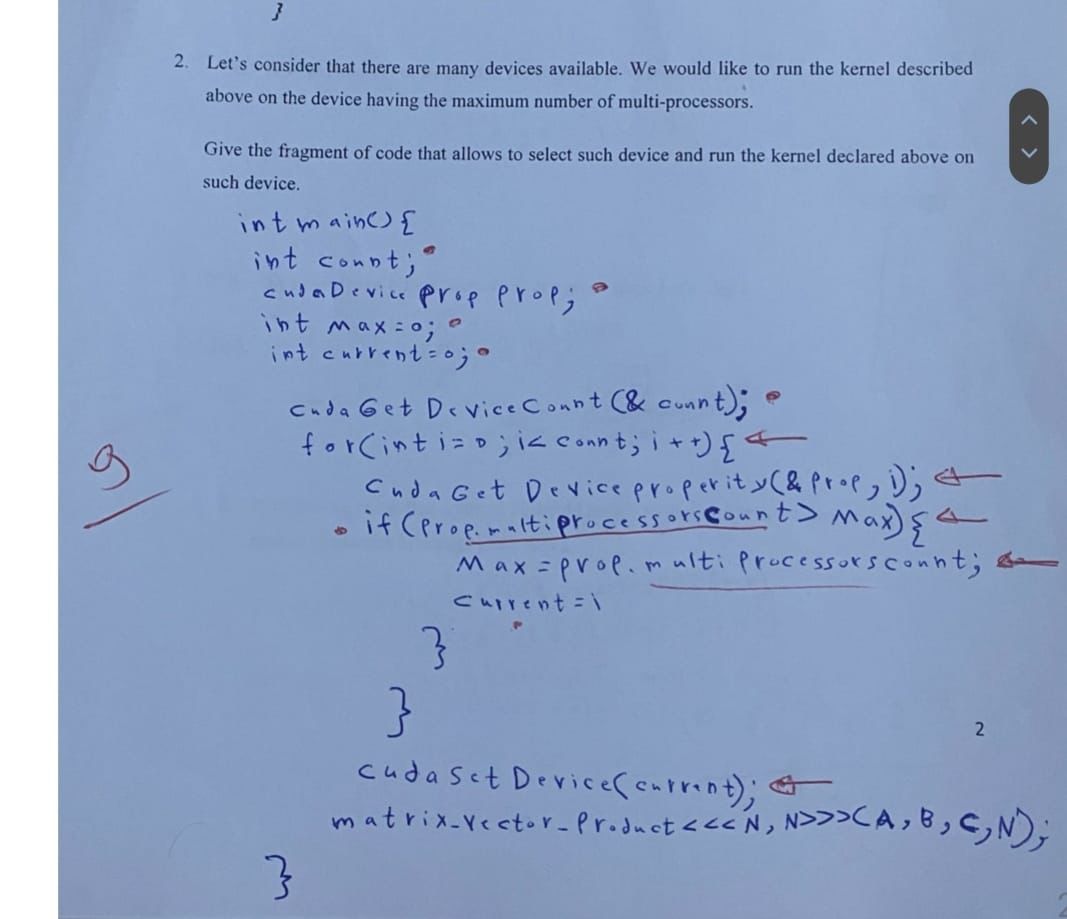 }
2. Let's consider that there are many devices available. We would like to run the kernel described
above on the device having the maximum number of multi-processors.
Give the fragment of code that allows to select such device and run the kernel declared above on
such device.
int main() {
int count;
cudaDevice prop prop;
int max=0;
int current=0;
cuda Get Device Count (& count);
for(int i=0; i< count; i++) {
Cuda Get Device properity(& prop, i);
if (prop. multiprocessorsCount > Max) {
Max = prop. multi processors count;
current = i
}
}
2
cuda Set Device(current);
matrix_Vector_Product <<< N, N>>>(A, B, C, N);
}
9